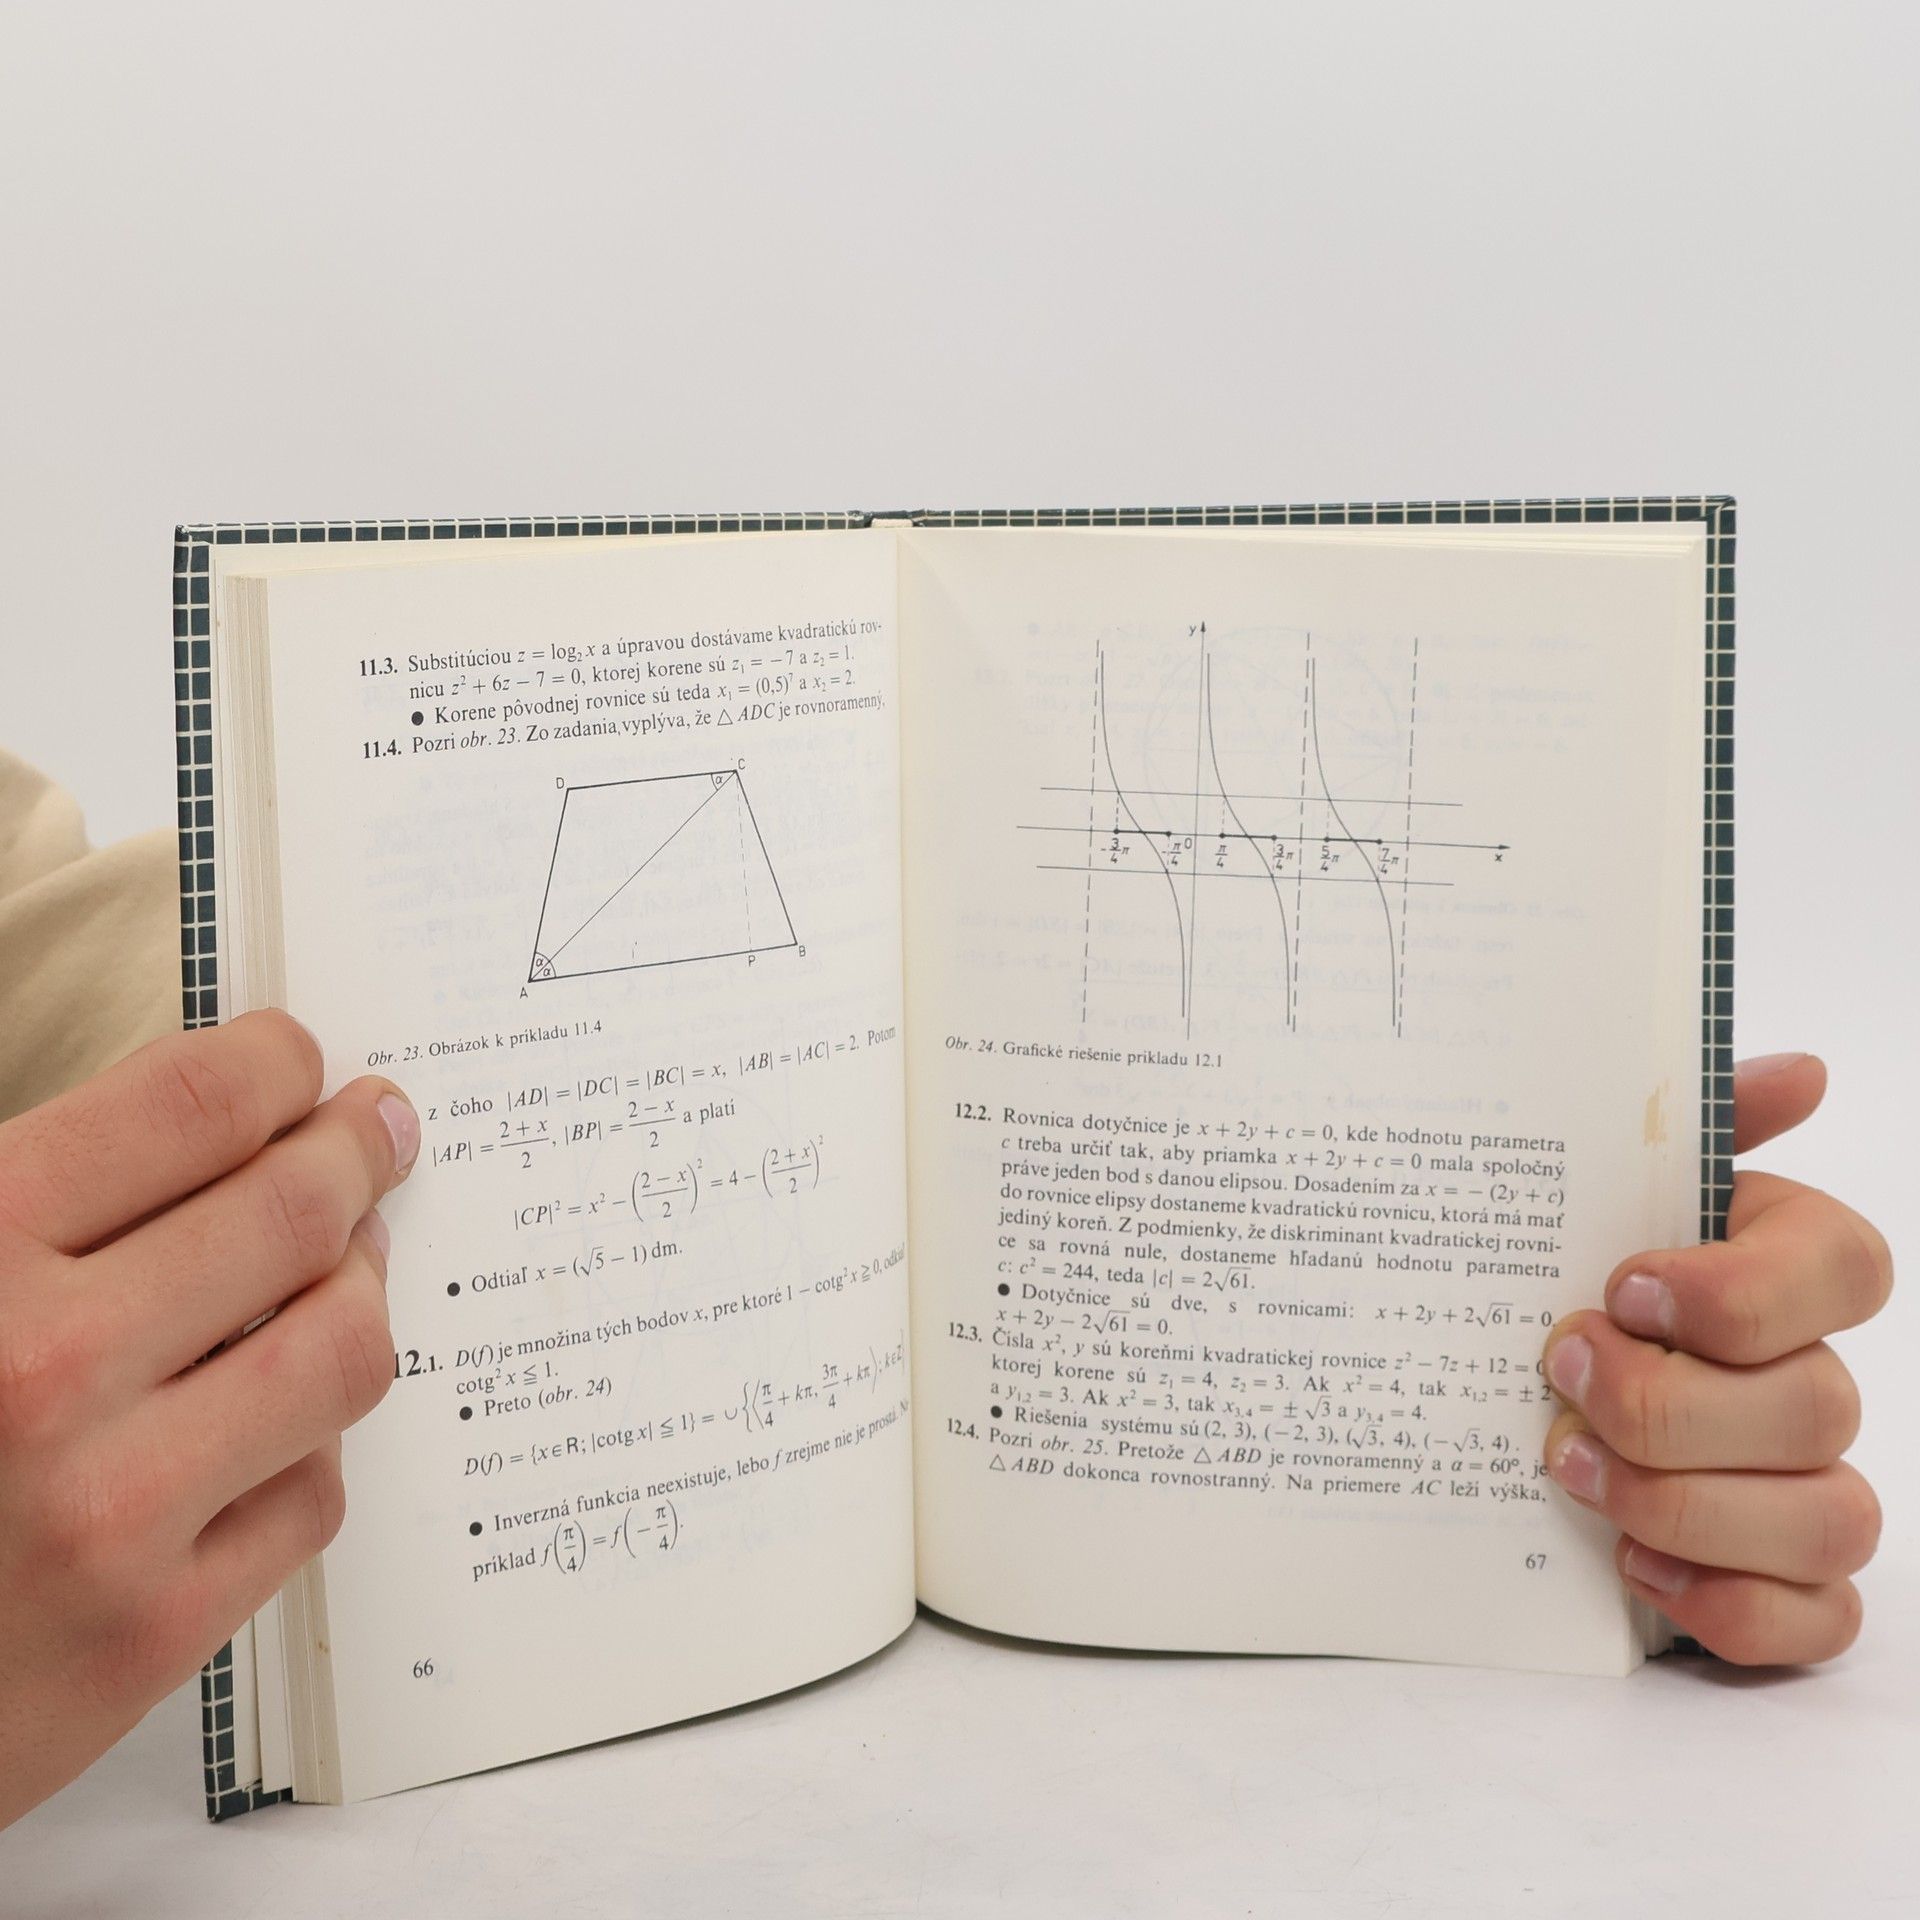 11.3. Substitúciou z = log₂ x a úpravou dostávame kvadratickú rov-
nicu z² + 6z − 7 = 0, ktorej korene sú z₁ = −7 a z₂ = 1.
● Korene pôvodnej rovnice sú teda x₁ = (0,5)⁷ a x₂ = 2.
11.4. Pozri obr. 23. Zo zadania vyplýva, že △ ADC je rovnoramenný,
D C α
α α
A P B
Obr. 23. Obrázok k príkladu 11.4
z čoho |AD| = |DC| = |BC| = x, |AB| = |AC| = 2. Potom
|AP| = (2 + x)/2, |BP| = (2 − x)/2 a platí
|CP|² = x² − ((2 − x)/2)² = 4 − ((2 + x)/2)²
● Odtiaľ x = (√5 − 1) dm.
12.1. D(f) je množina tých bodov x, pre ktoré 1 − cotg² x ≧ 0, odkiaľ
cotg² x ≦ 1.
● Preto (obr. 24)
D(f) = {x ∈ R; |cotg x| ≦ 1} = ∪ {⟨π/4 + kπ, 3π/4 + kπ⟩; k ∈ Z}
● Inverzná funkcia neexistuje, lebo f zrejme nie je prostá. Na
príklad f(π/4) = f(−π/4).
66
y
-3/4 π -π/4 0 π/4 3/4 π 5/4 π 7/4 π x
Obr. 24. Grafické riešenie príkladu 12.1
12.2. Rovnica dotyčnice je x + 2y + c = 0, kde hodnotu parametra
c treba určiť tak, aby priamka x + 2y + c = 0 mala spoločný
práve jeden bod s danou elipsou. Dosadením za x = − (2y + c)
do rovnice elipsy dostaneme kvadratickú rovnicu, ktorá má mať
jediný koreň. Z podmienky, že diskriminant kvadratickej rovni-
ce sa rovná nule, dostaneme hľadanú hodnotu parametra
c: c² = 244, teda |c| = 2√61.
● Dotyčnice sú dve, s rovnicami: x + 2y + 2√61 = 0,
x + 2y − 2√61 = 0.
12.3. Čísla x², y sú koreňmi kvadratickej rovnice z² − 7z + 12 = 0
ktorej korene sú z₁ = 4, z₂ = 3. Ak x² = 4, tak x₁,₂ = ± 2
a y₁,₂ = 3. Ak x² = 3, tak x₃,₄ = ± √3 a y₃,₄ = 4.
● Riešenia systému sú (2, 3), (−2, 3), (√3, 4), (−√3, 4).
12.4. Pozri obr. 25. Pretože △ ABD je rovnoramenný a α = 60°, je
△ ABD dokonca rovnostranný. Na priemere AC leží výška,
67